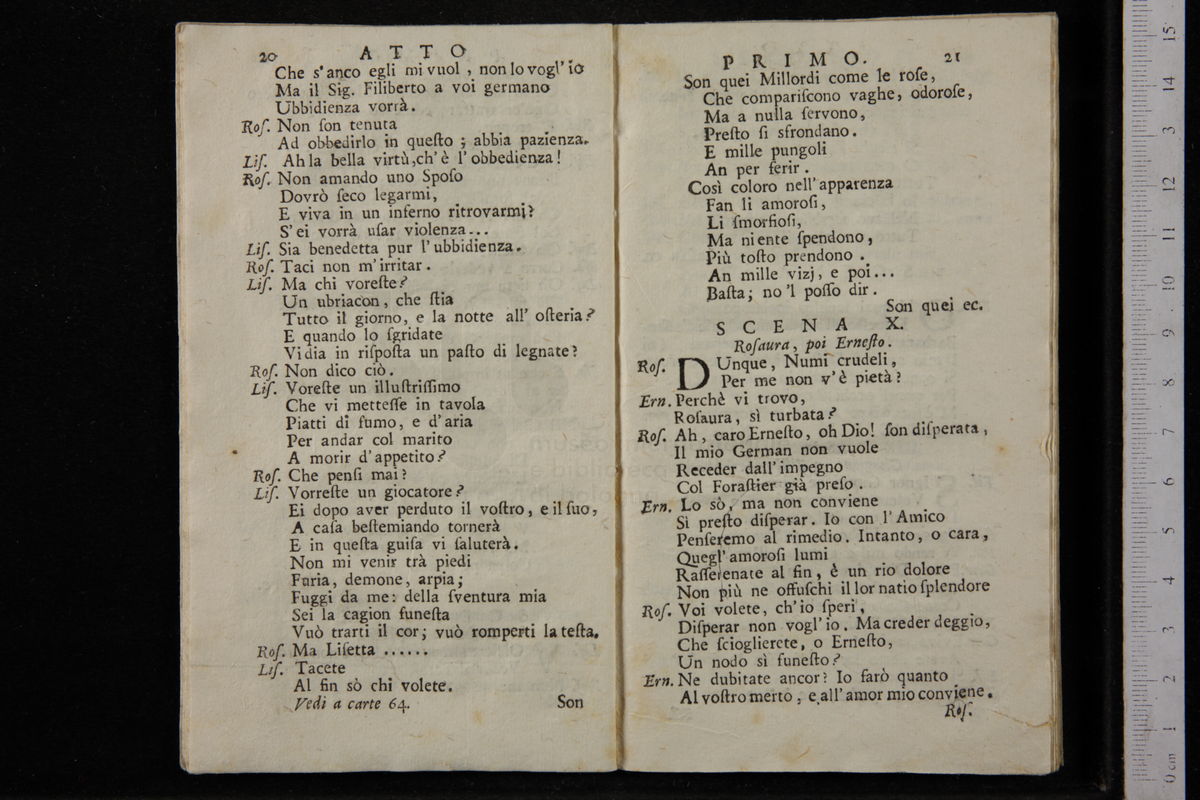 20 ATTO
Che s'anco egli mi vuol , non lo vogl' io
Ma il Sig. Filiberto a voi germano
Ubbidienza vorrà.
Roſ. Non ſon tenuta
Ad obbedirlo in queſto ; abbia pazienza.
Liſ. Ah la bella virtù, ch'è l'obbedienza!
Roſ. Non amando uno Spoſo
Dovrò ſeco legarmi,
E viva in un inferno ritrovarmi?
S'ei vorrà uſar violenza...
Liſ. Sia benedetta pur l'ubbidienza.
Roſ. Taci non m'irritar.
Liſ. Ma chi voreſte?
Un ubriacon, che ſtia
Tutto il giorno, e la notte all' oſteria?
E quando lo ſgridate
Vi dia in riſpoſta un paſto di legnate?
Roſ. Non dico ciò.
Liſ. Voreſte un illuſtriſſimo
Che vi metteſſe in tavola
Piatti di fumo, e d'aria
Per andar col marito
A morir d'appetito?
Roſ. Che penſi mai?
Liſ. Vorreſte un giocatore?
Ei dopo aver perduto il voſtro, e il ſuo,
A caſa beſtemiando tornerà
E in queſta guiſa vi ſaluterà.
Non mi venir trà piedi
Furia, demone, arpia;
Fuggi da me: della ſventura mia
Sei la cagion funeſta
Vuò trarti il cor; vuò romperti la teſta.
Roſ. Ma Liſetta ......
Liſ. Tacete
Al fin sò chi volete.
Vedi a carte 64. Son
PRIMO. 21
Son quei Millordi come le roſe,
Che compariſcono vaghe, odoroſe,
Ma a nulla ſervono,
Preſto ſi sfrondano.
E mille pungoli
An per ferir.
Così coloro nell'apparenza
Fan li amoroſi,
Li ſmorfioſi,
Ma niente ſpendono,
Più toſto prendono.
An mille vizj, e poi...
Baſta; no'l poſſo dir.
Son quei ec.
SCENA X.
Roſaura, poi Erneſto.
Roſ. DUnque, Numi crudeli,
Per me non v'è pietà?
Ern. Perchè vi trovo,
Roſaura, sì turbata?
Roſ. Ah, caro Erneſto, oh Dio! ſon diſperata,
Il mio German non vuole
Receder dall'impegno
Col Foraſtier già preſo.
Ern. Lo sò, ma non conviene
Sì preſto diſperar. Io con l'Amico
Penſeremo al rimedio. Intanto, o cara,
Quegl'amoroſi lumi
Raſſerenate al fin, è un rio dolore
Non più ne offuſchi il lor natio ſplendore
Roſ. Voi volete, ch'io ſperi,
Diſperar non vogl'io. Ma creder deggio,
Che ſcioglierete, o Erneſto,
Un nodo sì funeſto?
Ern. Ne dubitate ancor? Io farò quanto
Al voſtro merto, e all'amor mio conviene.
Roſ.